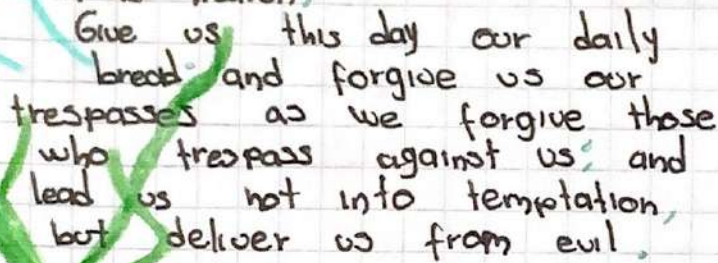 Give us this day our daily
bread and forgive us our
trespasses as we forgive those
who trespass against us; and
lead us not into temptation,
but deliver us from evil.